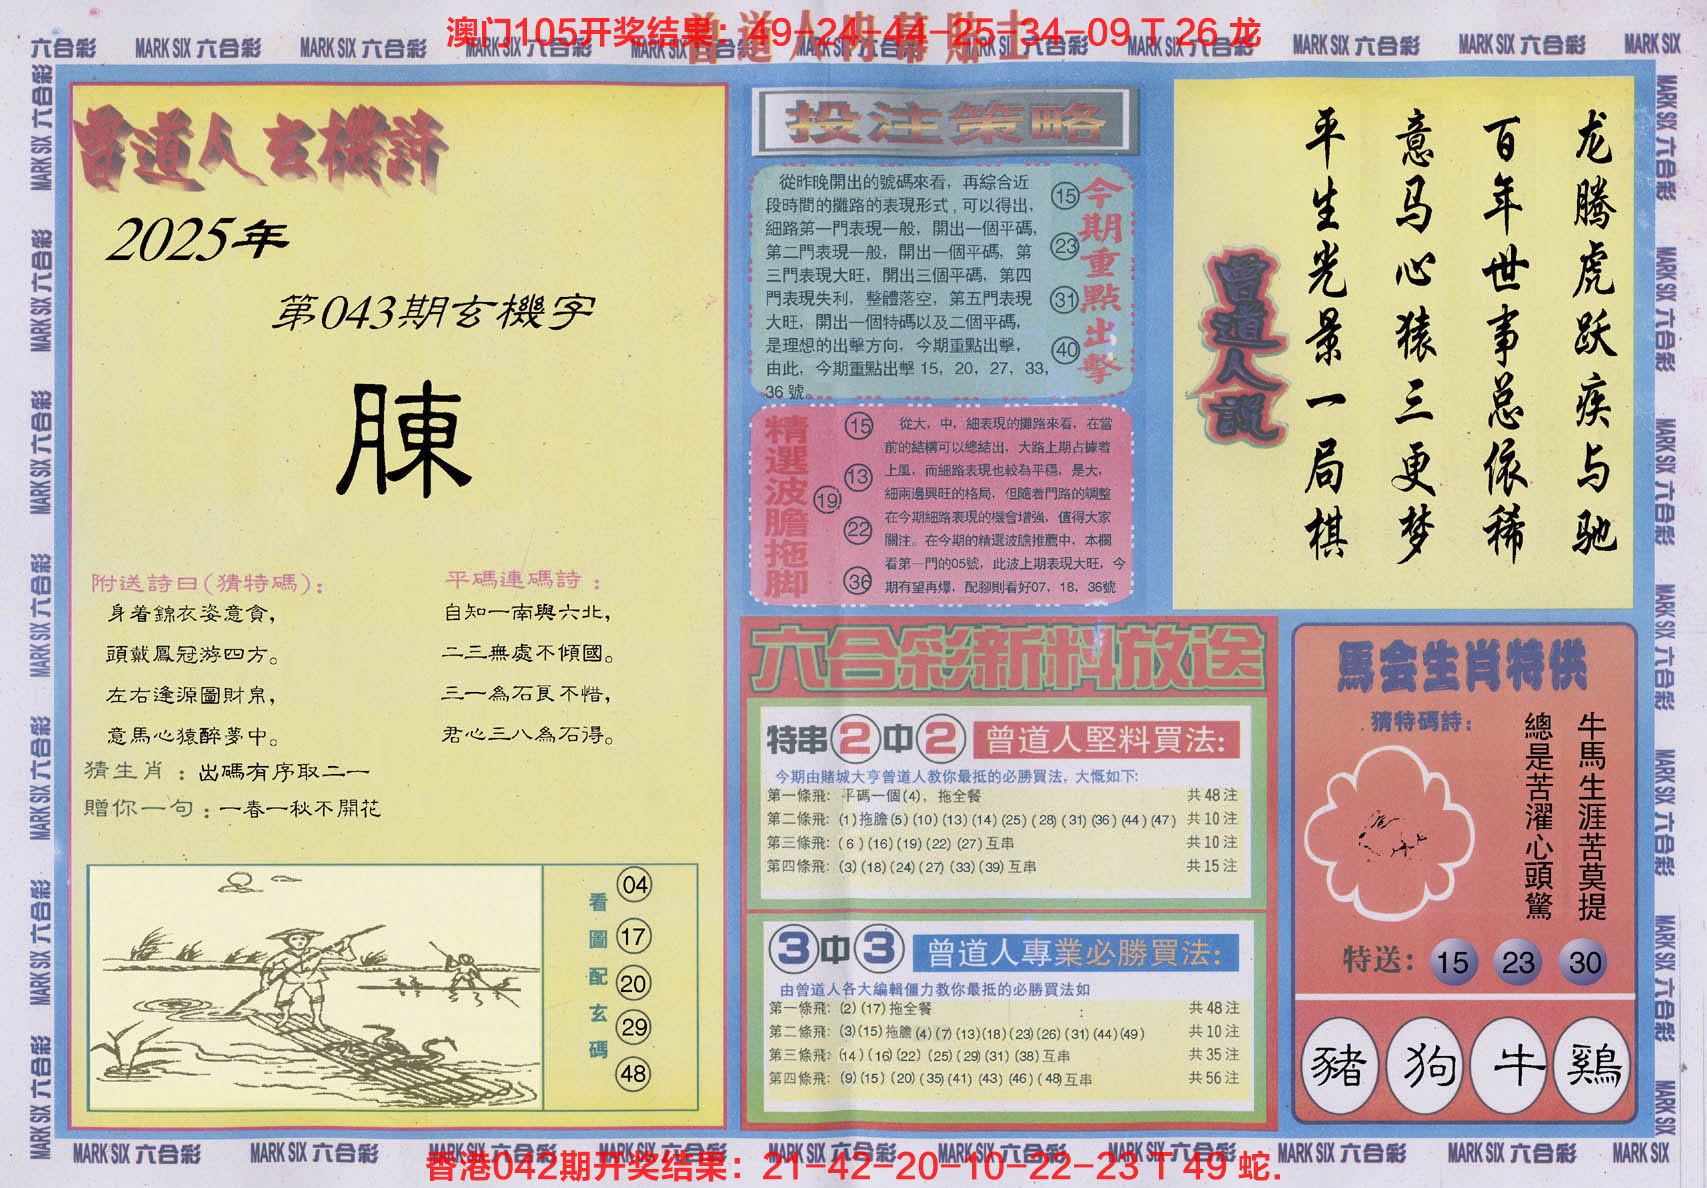 澳门105开奖结果：49-24-44-25-34-09 T 26 龙
六合彩 MARK SIX 六合彩 MARK SIX 六合彩 MARK SIX 六合彩 MARK SIX 六合彩 MARK SIX 六合彩 MARK SIX 六合彩 MARK SIX 六合彩 MARK SIX 六合彩 MARK SIX
曾道人玄機詩
2025年
第043期玄機字
腖
附送詩曰(猜特碼)：
身着錦衣姿意貪，
頭戴鳳冠游四方。
左右逢源圖財帛，
意馬心猿醉夢中。
平碼連碼詩：
自知一南與六北，
二三無處不傾國。
三一為石良不惜，
君心三八為石得。
猜生肖：出碼有序取二一
贈你一句：一春一秋不開花
看圖配玄碼
04
17
20
29
48
投注策略
從昨晚開出的號碼來看，再綜合近
段時間的攤路的表現形式，可以得出，
細路第一門表現一般，開出一個平碼，
第二門表現一般，開出一個平碼，第
三門表現大旺，開出三個平碼，第四
門表現失利，整體落空，第五門表現
大旺，開出一個特碼以及二個平碼，
是理想的出擊方向，今期重點出擊，
由此，今期重點出擊 15，20，27，33，
36 號。
15
23
31
40
今期重點出擊
精選波膽拖脚
15
13
19
22
36
從大，中，細表現的攤路來看，在當
前的結構可以總結出，大路上期占據着
上風，而細路表現也較為平穩，是大，
細兩邊興旺的格局，但隨着門路的調整
在今期細路表現的機會增強，值得大家
關注。在今期的精選波膽推薦中，本欄
看第一門的05號，此波上期表現大旺，今
期有望再爆，配腳則看好07，18，36號
六合彩新料放送
特串2中2 曾道人堅料買法:
今期由賭城大亨曾道人教你最抵的必勝買法，大慨如下:
第一條飛: 平碼一個(4)，拖全餐 共48注
第二條飛: (1)拖膽(5)(10)(13)(14)(25)(28)(31)(36)(44)(47) 共10注
第三條飛: (6)(16)(19)(22)(27)互串 共10注
第四條飛: (3)(18)(24)(27)(33)(39)互串 共15注
3中3 曾道人專業必勝買法:
由曾道人各大編輯僵力教你最抵的必勝買法如
第一條飛: (2)(17)拖全餐 共48注
第二條飛: (3)(15)拖膽(4)(7)(13)(18)(23)(26)(31)(44)(49) 共10注
第三條飛: (14)(16)(22)(25)(29)(31)(38)互串 共35注
第四條飛: (9)(15)(20)(35)(41)(43)(46)(48)互串 共56注
龙腾虎跃疾与驰
百年世事总依稀
意马心猿三更梦
平生光景一局棋
曾道人說
馬会生肖特供
猜特碼詩:
牛馬生涯苦莫提
總是苦濯心頭驚
特送: 15 23 30
豬 狗 牛 鷄
MARK SIX 六合彩 MARK SIX 六合彩 MARK SIX 六合彩 MARK SIX 六合彩 MARK SIX 六合彩 MARK SIX 六合彩 MARK SIX 六合彩 MARK SIX 六合彩 MARK SIX 六合彩 MARK SIX
香港042期开奖结果：21-42-20-10-22-23 T 49 蛇.